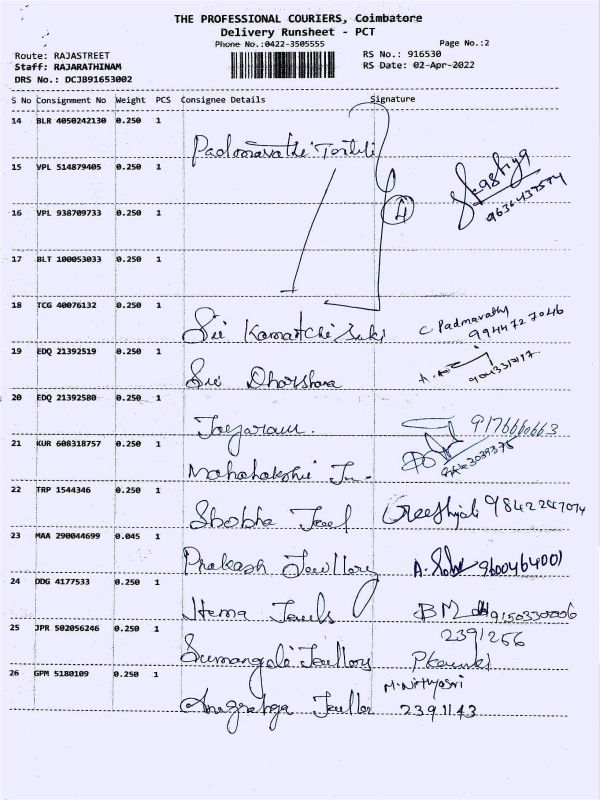 THE PROFESSIONAL COURIERS, Coimbatore
Delivery Runsheet - PCT
Phone No.:0422-3505555 Page No.:2
Route: RAJASTREET RS No.: 916530
Staff: RAJARATHINAM RS Date: 02-Apr-2022
DRS No.: DCJB91653002
S No Consignment No Weight PCS Consignee Details Signature
14 BLR 4050242130 0.250 1
Padmavathi
15 VPL 514879405 0.250 1
4
16 VPL 938709733 0.250 1
17 BLT 100053033 0.250 1
18 TCG 40076132 0.250 1
Sri Kamatchi C Padmavathy
99447 27046
19 EDQ 21392519 0.250 1
Sri Dharshana
20 EDQ 21392580 0.250 1
Jeyaram. 9176660663
21 KUR 608318757 0.250 1
Mahalakshmi
22 TRP 1544346 0.250 1
Shobha Jewel 9842247074
23 MAA 290044699 0.045 1
Prakash Jewllery 9600464001
24 DDG 4177533 0.250 1
Hema Jewls BM 9150330006
25 JPR 502056246 0.250 1 2391256
Sumangali Jewllery
26 GPM 5180109 0.250 1 M. Nithyasri
2391143